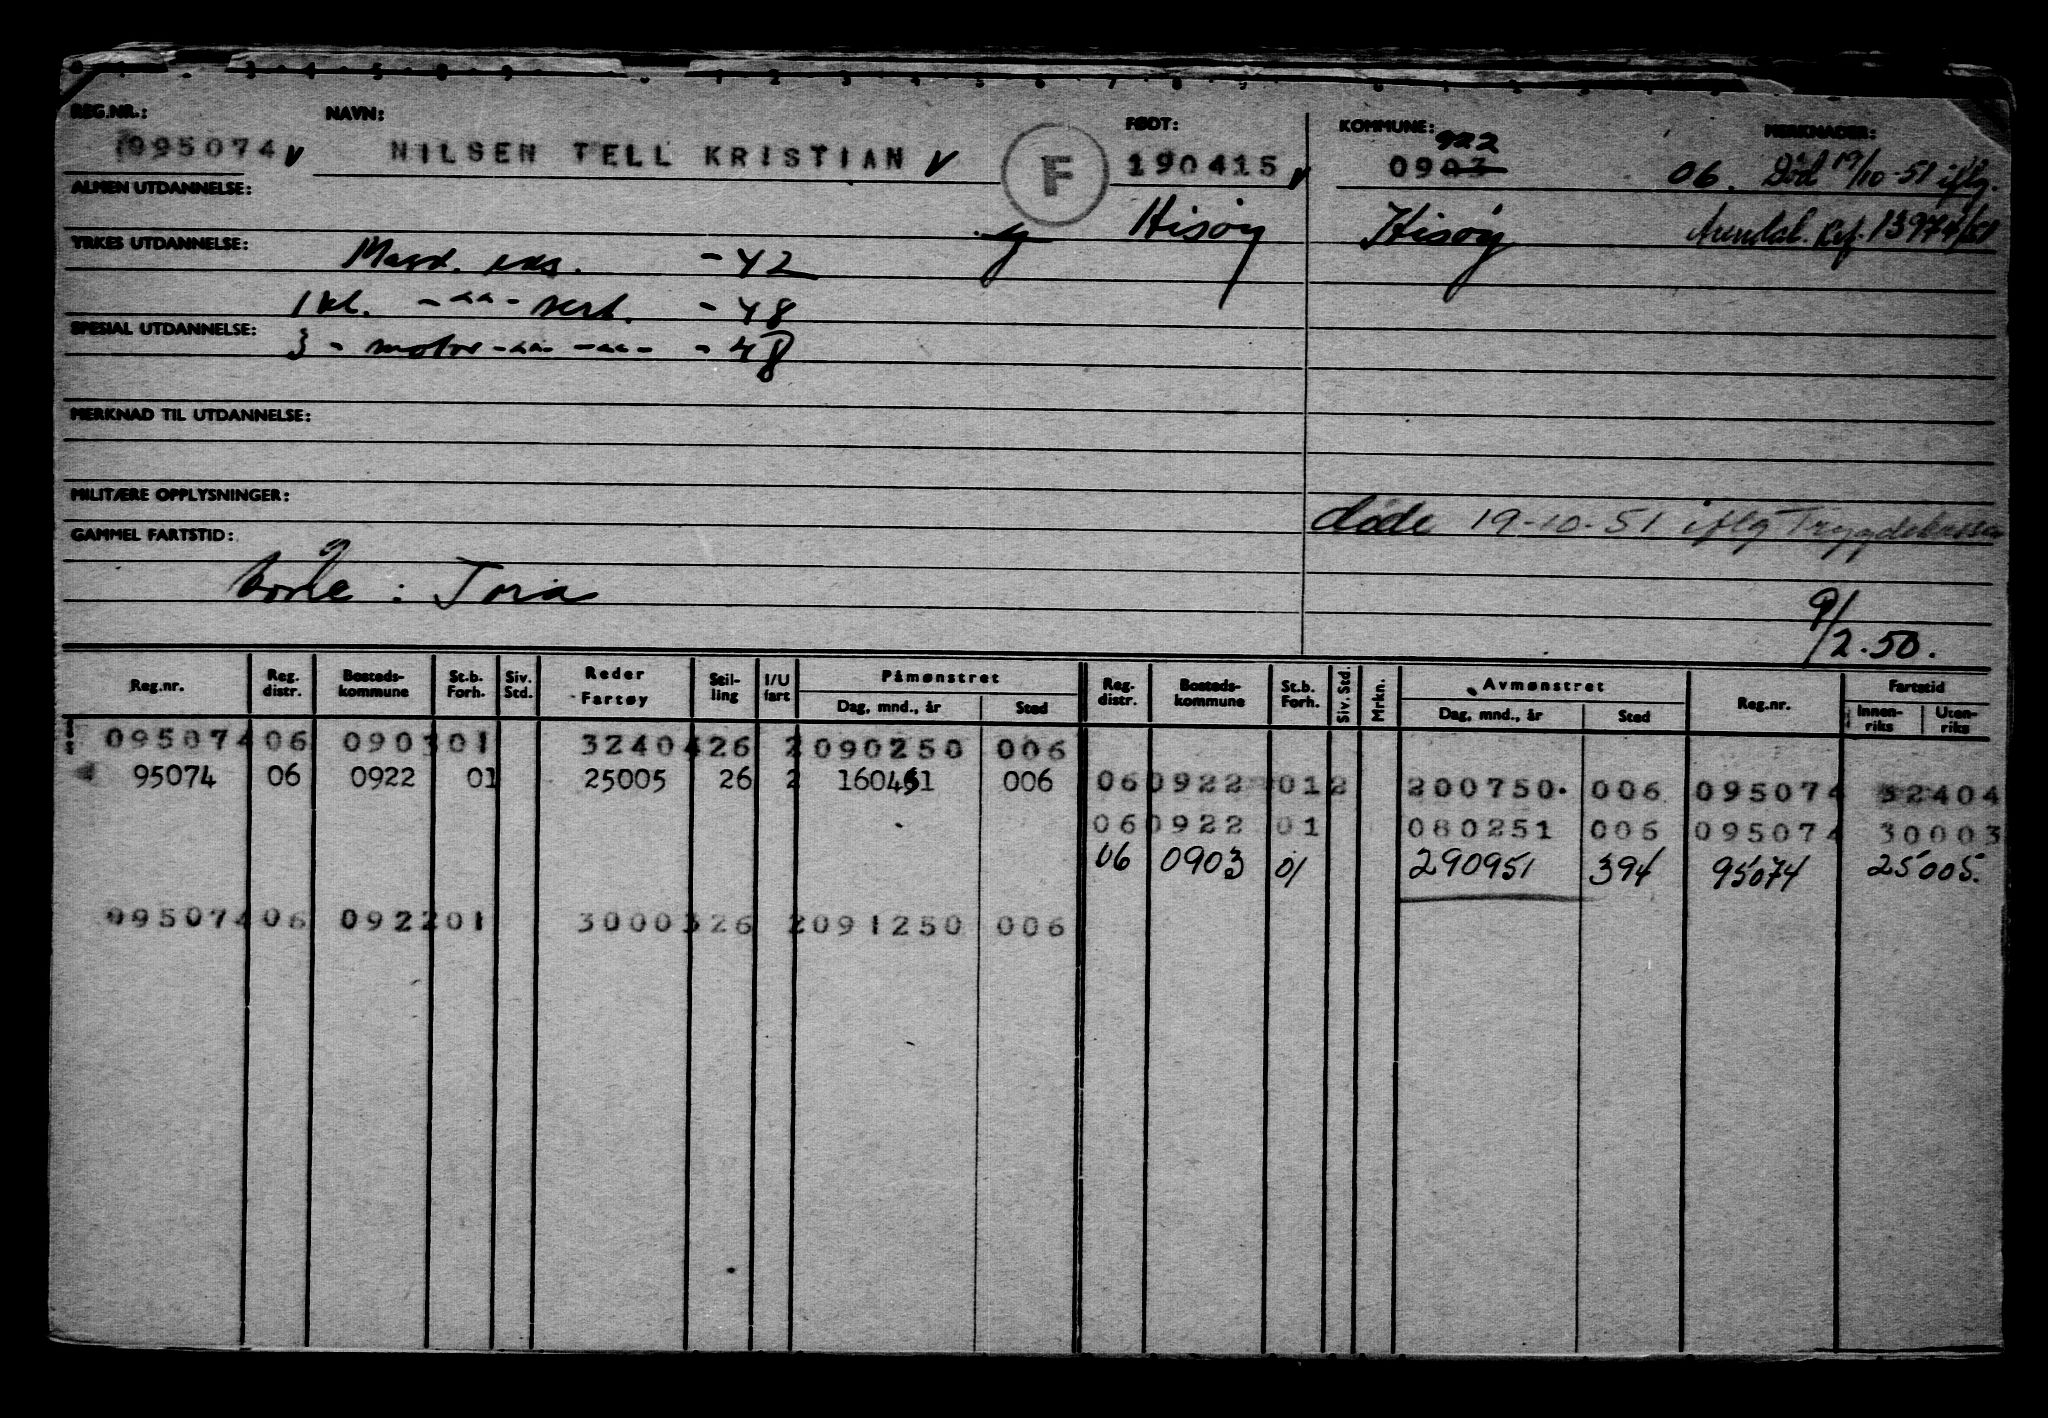 REG.NR.: NAVN: FØDT: KOMMUNE: 922 MERKNADER:
095074 v NILSEN TELL KRISTIAN v F 190415 v 0903 06. Död 19/10-51 iflg.
ALMEN UTDANNELSE: Hisöy Hisöy Arendal. Ref. 13974/51
YRKES UTDANNELSE: Mask. eks. - 42
1 kl. -"- sert. - 48
SPESIAL UTDANNELSE: 3 - motor -"- -"- - 48
MERKNAD TIL UTDANNELSE:
MILITÆRE OPPLYSNINGER: döde 19-10-51 iflg Trygdekassen
GAMMEL FARTSTID:
: Toria
9/2.50.
Reg.nr. Reg. distr. Bosteds-kommune St.b. Forh. Siv. Std. Reder Fartøy Stil-ling I/U fart Påmønstret Dag, mnd., år Sted Reg. distr. Bosteds-kommune St.b. Forh. Siv. Std. Mrkn. Avmønstret Dag, mnd., år Sted Reg.nr. Fartstid Innen-riks Uten-riks
095074 06 0903 01 32404 26 2 090250 006
95074 06 0922 01 25005 26 2 160451 006 06 0922 01 2 200750. 006 095074 32404
06 0922 01 080251 006 095074 30003
06 0903 01 290951 394 95074 25005.
095074 06 0922 01 30003 26 2 091250 006